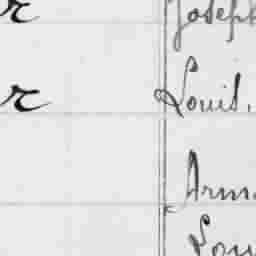 r Joseph
r Louis.
Arm
Lou